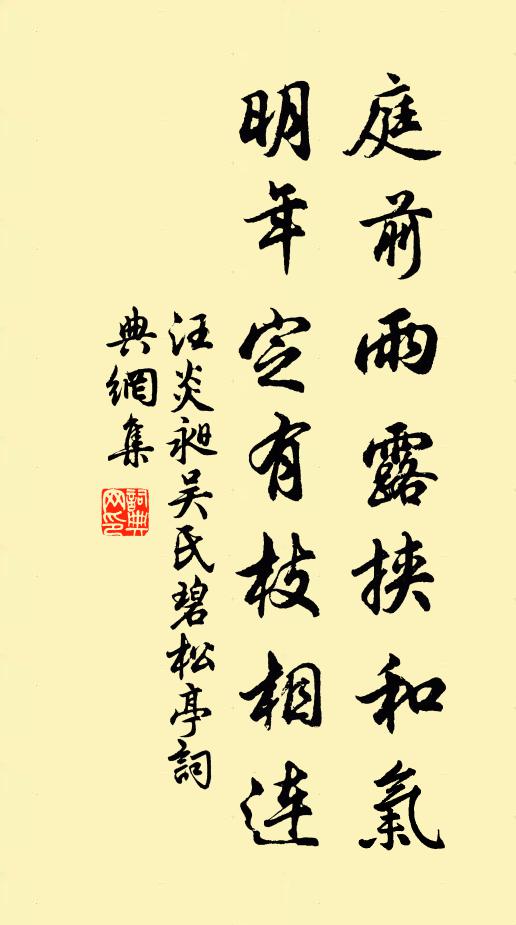 庭前雨露挾和氣
明年定有枝相連
汪炎昶吴氏碧松亭詞
典網集
詞典网印